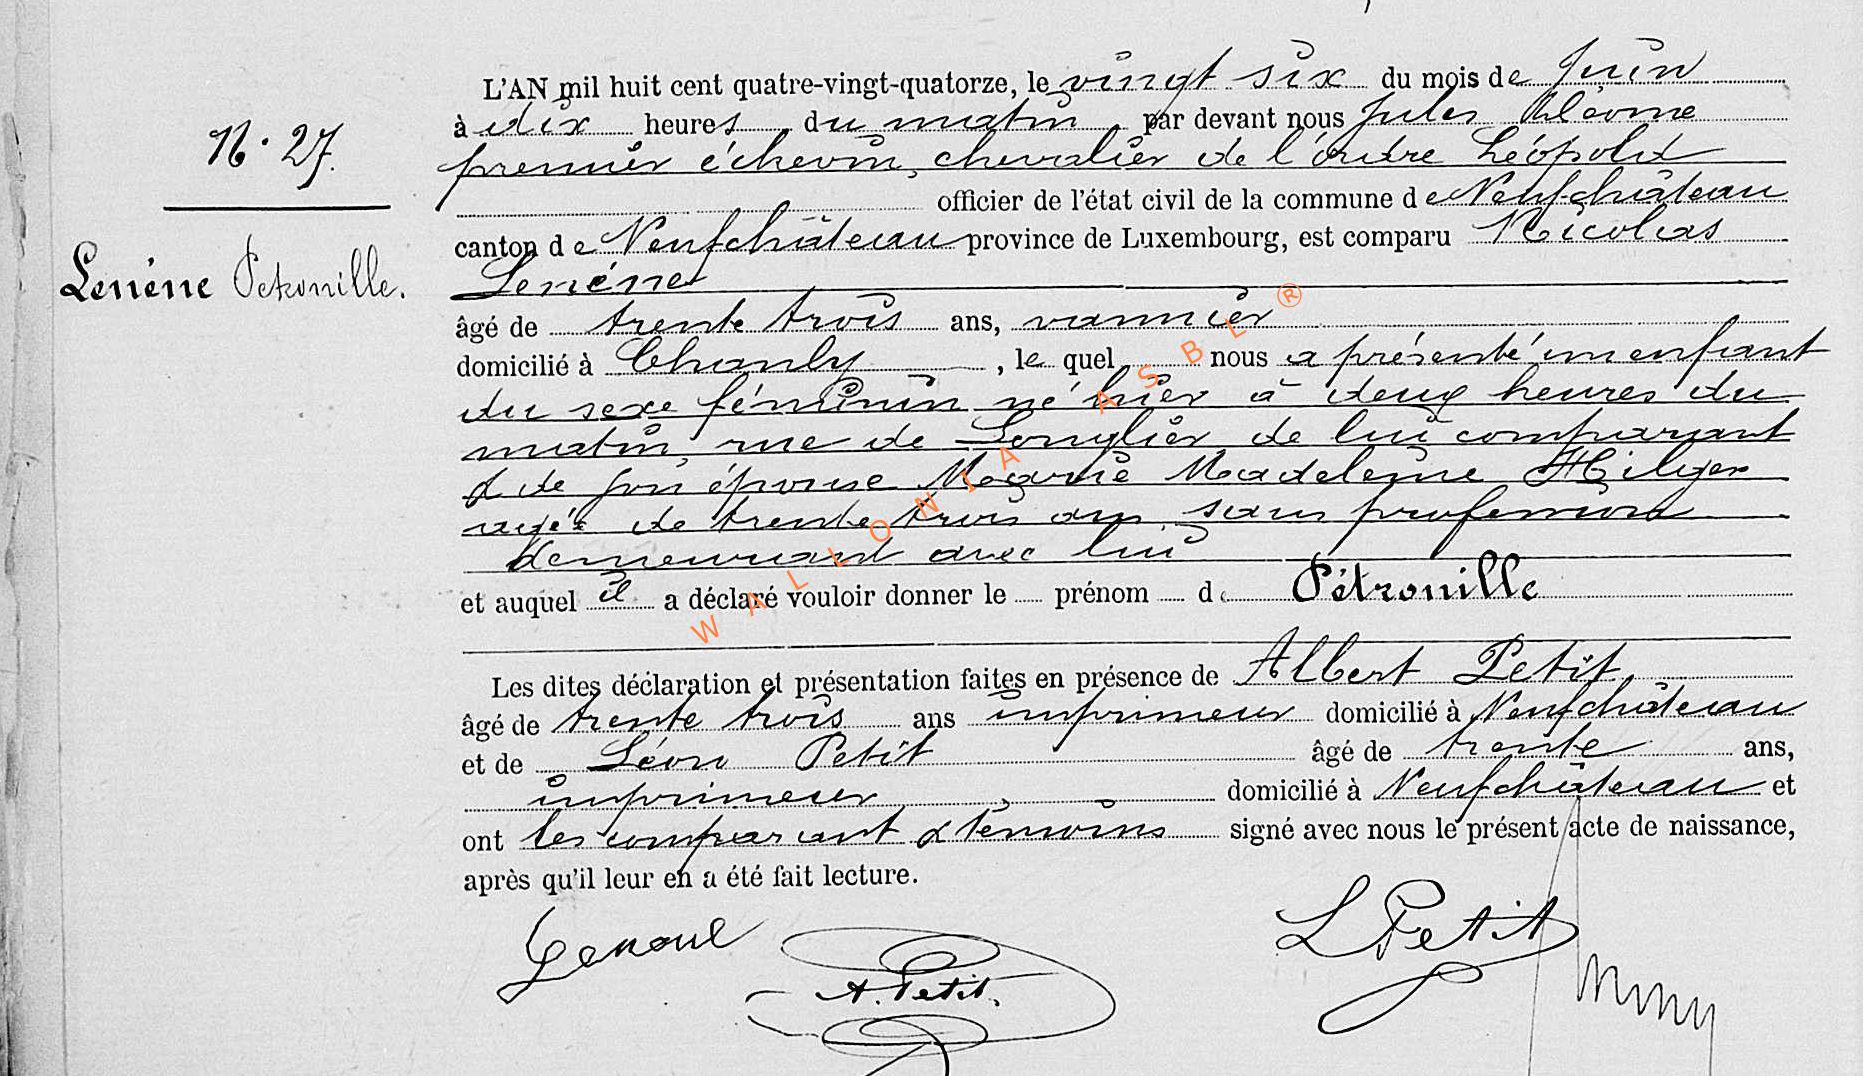 N. 27.
Lenène Petronille.
L'AN mil huit cent quatre-vingt-quatorze, le vingt six du mois de Juin
à dix heures du matin par devant nous Jules
premier échevin, chevalier de l'ordre Léopold
officier de l'état civil de la commune de Neufchâteau
canton de Neufchâteau province de Luxembourg, est comparu Nicolas
Lenéne
âgé de trente trois ans, vannier
domicilié à Chanly, le quel nous a présenté un enfant
du sexe féminin né hier à deux heures du
matin, rue de Longlier de lui comparant
& de son épouse Marie Madeleine Hilger
agée de trente trois ans, sans profession
demeurant avec lui
et auquel il a déclaré vouloir donner le prénom de Pétronille
Les dites déclaration et présentation faites en présence de Albert Petit
âgé de trente trois ans imprimeur domicilié à Neufchâteau
et de Léon Petit âgé de trente ans,
imprimeur domicilié à Neufchâteau et
ont les comparant & témoins signé avec nous le présent acte de naissance,
après qu'il leur en a été fait lecture.
L Petit
A. Petit.
WALLONIA ASBL ®